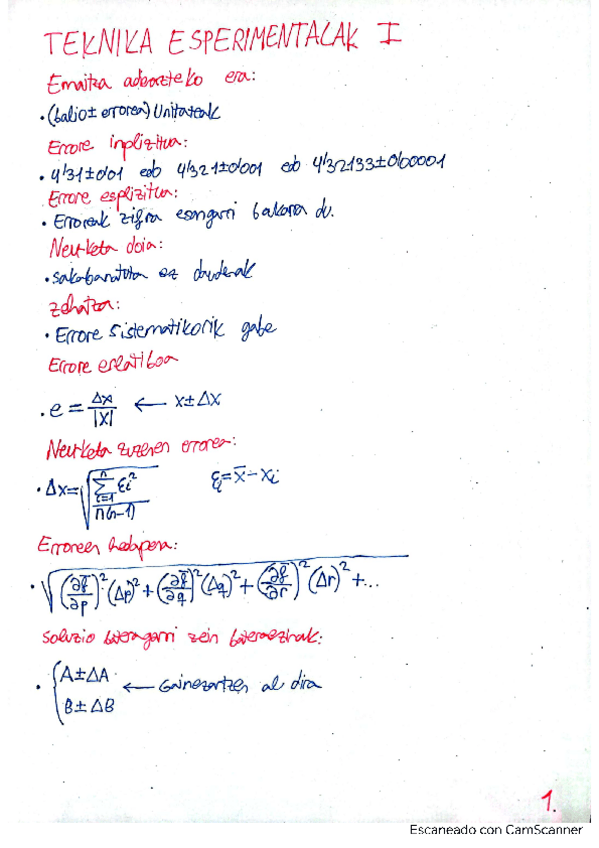 TEKNIKA ESPERIMENTALAK I
Emaitza adierazteko era:
• (balio ± errorea) Unitateak
Errore inplizitua:
• 4'31±0'01 edo 4'321±0'001 edo 4'32133±0'00001
Errore esplizitua:
• Erroreak zifra esangarri bakarra du.
Neurketa doia:
• sakabanatuta ez daudenak
Zehatza:
• Errore sistematikorik gabe
Errore erlatiboa
• e = Δx/|x| ← x±Δx
Neurketa zuzenen errorea:
• Δx = √(∑ᵢ₌₁ⁿ εᵢ² / n(n-1)) εᵢ = x̄ - xᵢ
Erroreen hedapena:
• √((∂f/∂p)²(Δp)² + (∂f/∂q)²(Δq)² + (∂f/∂r)²(Δr)² + ...
Soluzio bateragarri zein bateraezinak:
• { A±ΔA
B±ΔB ← Gainezartzen al dira
1.
Escaneado con CamScanner